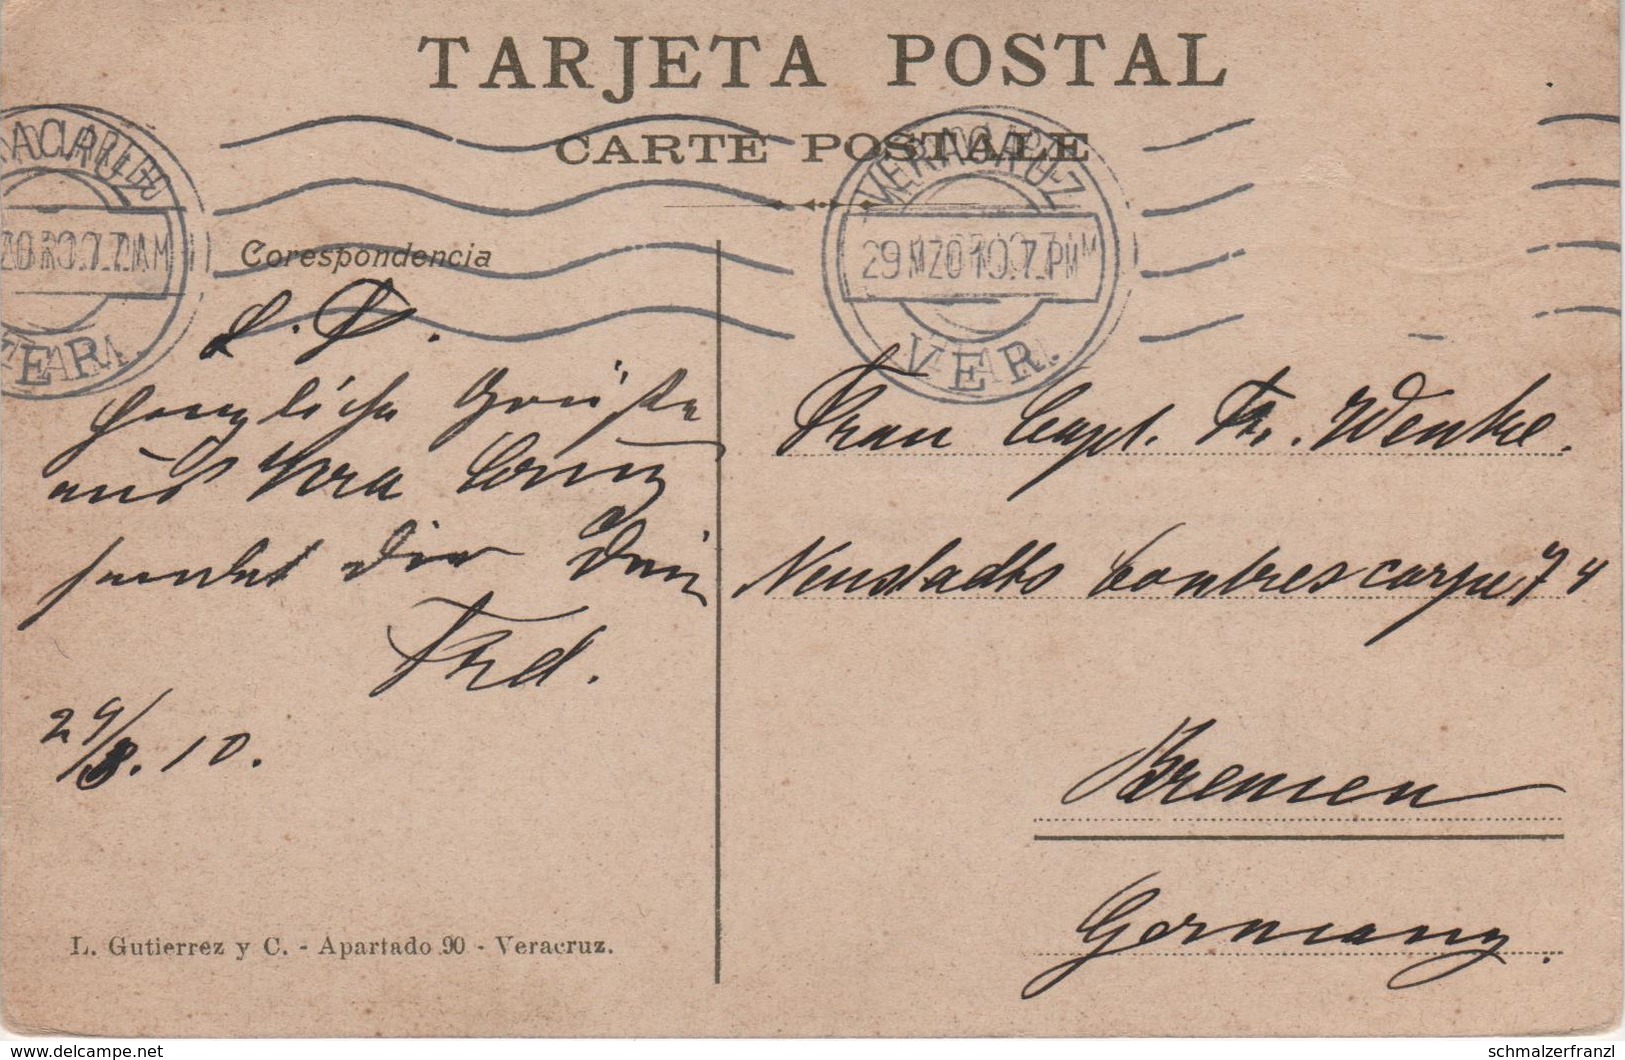 TARJETA POSTAL
CARTE POSTALE
VERACRUZ
29 MZO 10. 7 PM
VER.
ACRUZ
VER.
Corespondencia
L. F.
herzliche Grüße
aus Vera Cruz
sendet dir Dein
Frd.
29/3. 10.
Frau Capt. Th. Wenke.
Neustadts Contrescarpe 74
Bremen
Germany.
L. Gutierrez y C. - Apartado 90 - Veracruz.
www.delcampe.net
schmalzerfranzl